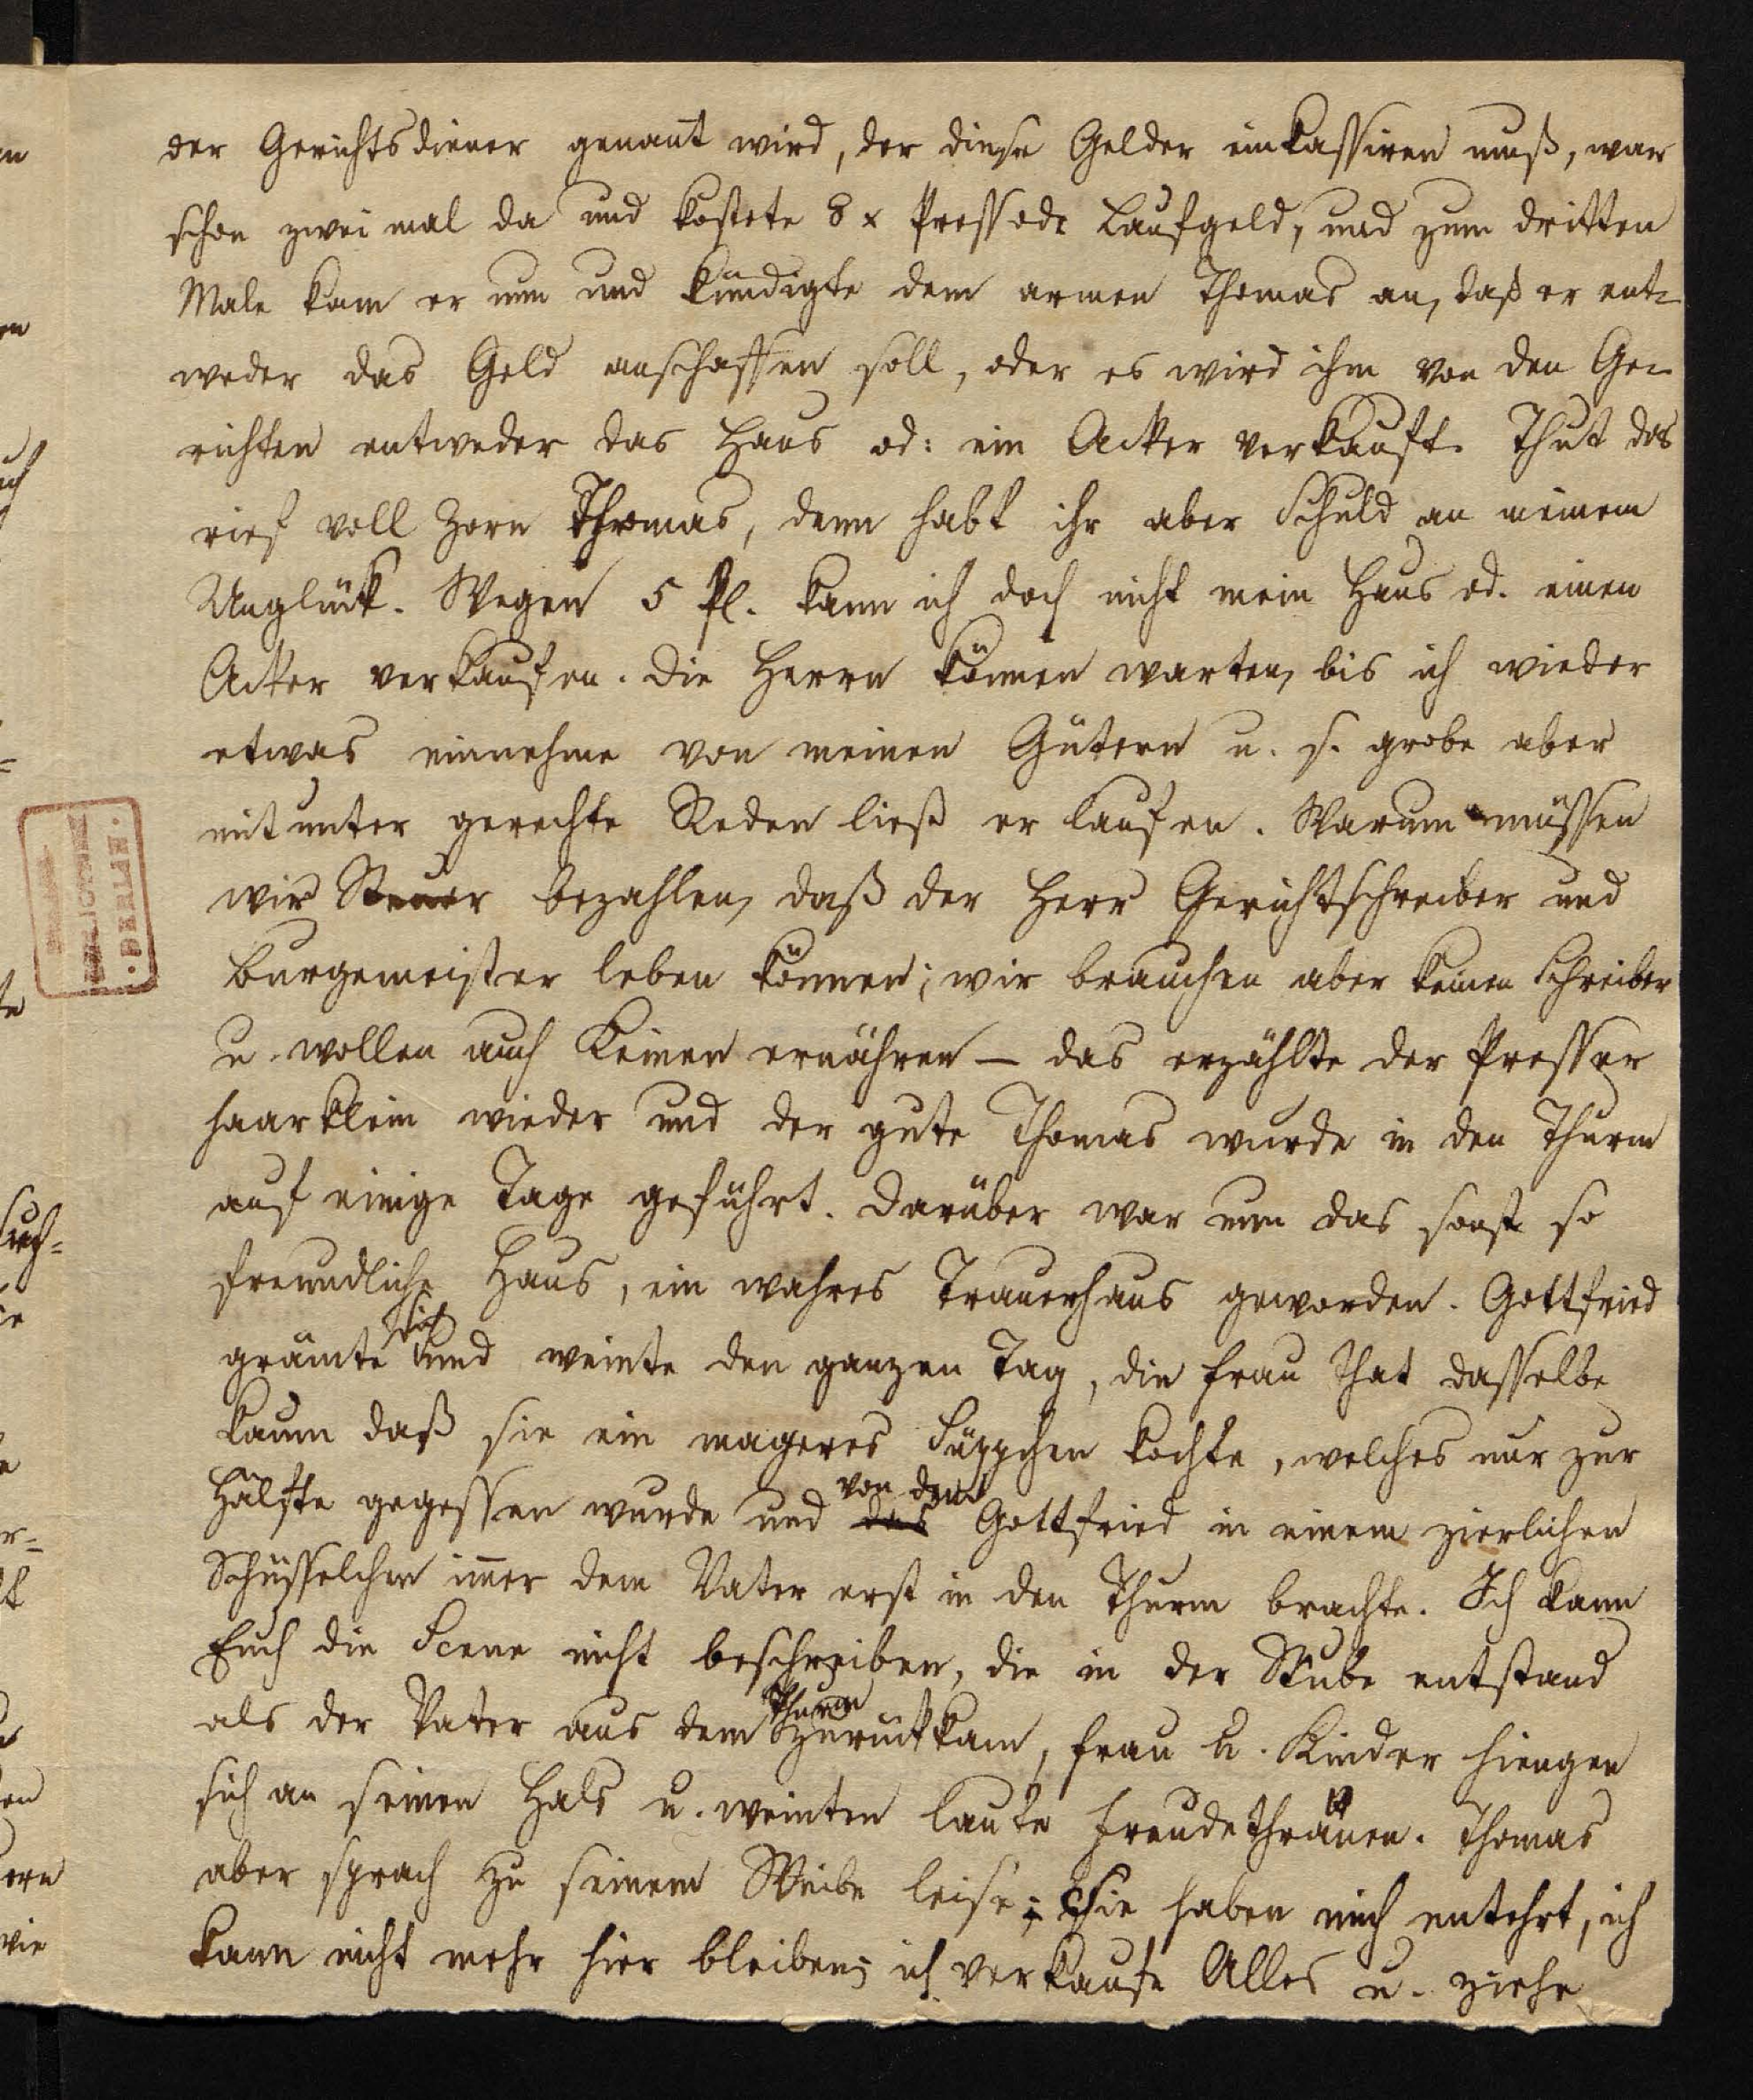 der Gerichtsdiener genañt wird, der diese Gelder einkassiren muß, war
schon zwei mal da und kostete 8 x Press od: Laufgeld, und zum dritten
Male kam er nun und kündigte dem armen Thomas an, daß er ent-
weder das Geld anschaffen soll, oder es wird ihm von den Ge-
richten entweder das Haus od: ein Acker verkauft. Thut das
rief voll Zorn Thomas, denn habt ihr aber Schuld an meinem
Unglück. Wegen 5 fl. kann ich doch nicht mein Haus od. einen
Acker verkaufen. die Herrn können warten, bis ich wieder
etwas einnehme von meinen Gütern u. s. grobe aber
mitunter gerechte Reden ließ er laufen. Warum müssen
wir Steuer bezahlen, daß der Herr Gerichtschreiber und
Burgemeister leben können; wir brauchen aber keinen Schreiber
u. wollen auch Keinen ernähren — das erzählte der Presser
haarklein wieder und der gute Thomas wurde in den Thurm
auf einige Tage geführt. Darüber war nun das sonst so
freundliche Haus, ein wahres Trauerhaus geworden. Gottfried
grämte sich und weinte den ganzen Tag, die Frau that dasselbe
kaum daß sie ein mageres Süppchen kochte, welches nur zur
Hälfte gegessen wurde und das von dem Gottfried in einem zierlichen
Schüsselchen im̄er dem Vater erst in den Thurm brachte. Ich kann
Euch die Scene nicht beschreiben, die in der Stube entstand
als der Vater aus dem Thurm zurückkam, Frau u. Kinder hiengen
sich an seinen Hals u. weinten laute Freudethränen. Thomas
aber sprach zu seinem Weibe leise; sie haben mich entehrt, ich
kann nicht mehr hier bleiben; ich verkaufe Alles u. ziehe
BERLIN.